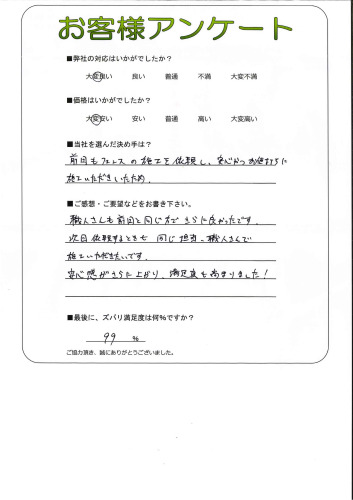 お客様アンケート
■弊社の対応はいかがでしたか?
大変良い 良い 普通 不満 大変不満
■価格はいかがでしたか?
大変安い 安い 普通 高い 大変高い
■当社を選んだ決め手は?
前回もフェンスの施工を依頼し、安心かつお値打ちに
施工いただきいたため。
■ご感想・ご要望などをお書き下さい。
職人さんも前回と同じ方でさらに良かったです。
次回依頼するときも同じ担当、職人さんで
施工いただきたいです。
安心感がさらに上がり、満足度も高まりました!
■最後に、ズバリ満足度は何%ですか?
99 %
ご協力頂き、誠にありがとうございました。